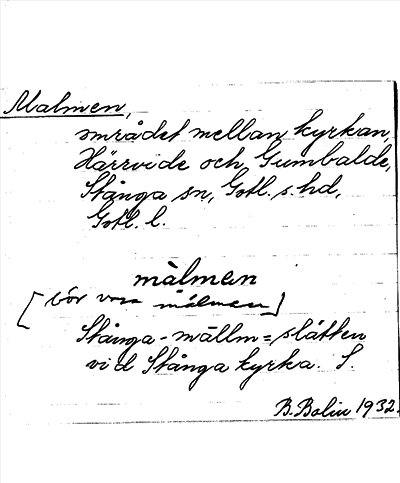 Malmen,
området mellan kyrkan,
Härrvide och Gumbalde,
Stånga sn, Gotl. s. hd,
Gotl. l.
màlmen
[bör vara målmen]
Stånga-mällm=slätten
vid Stånga kyrka. S.
B. Bolin 1932.